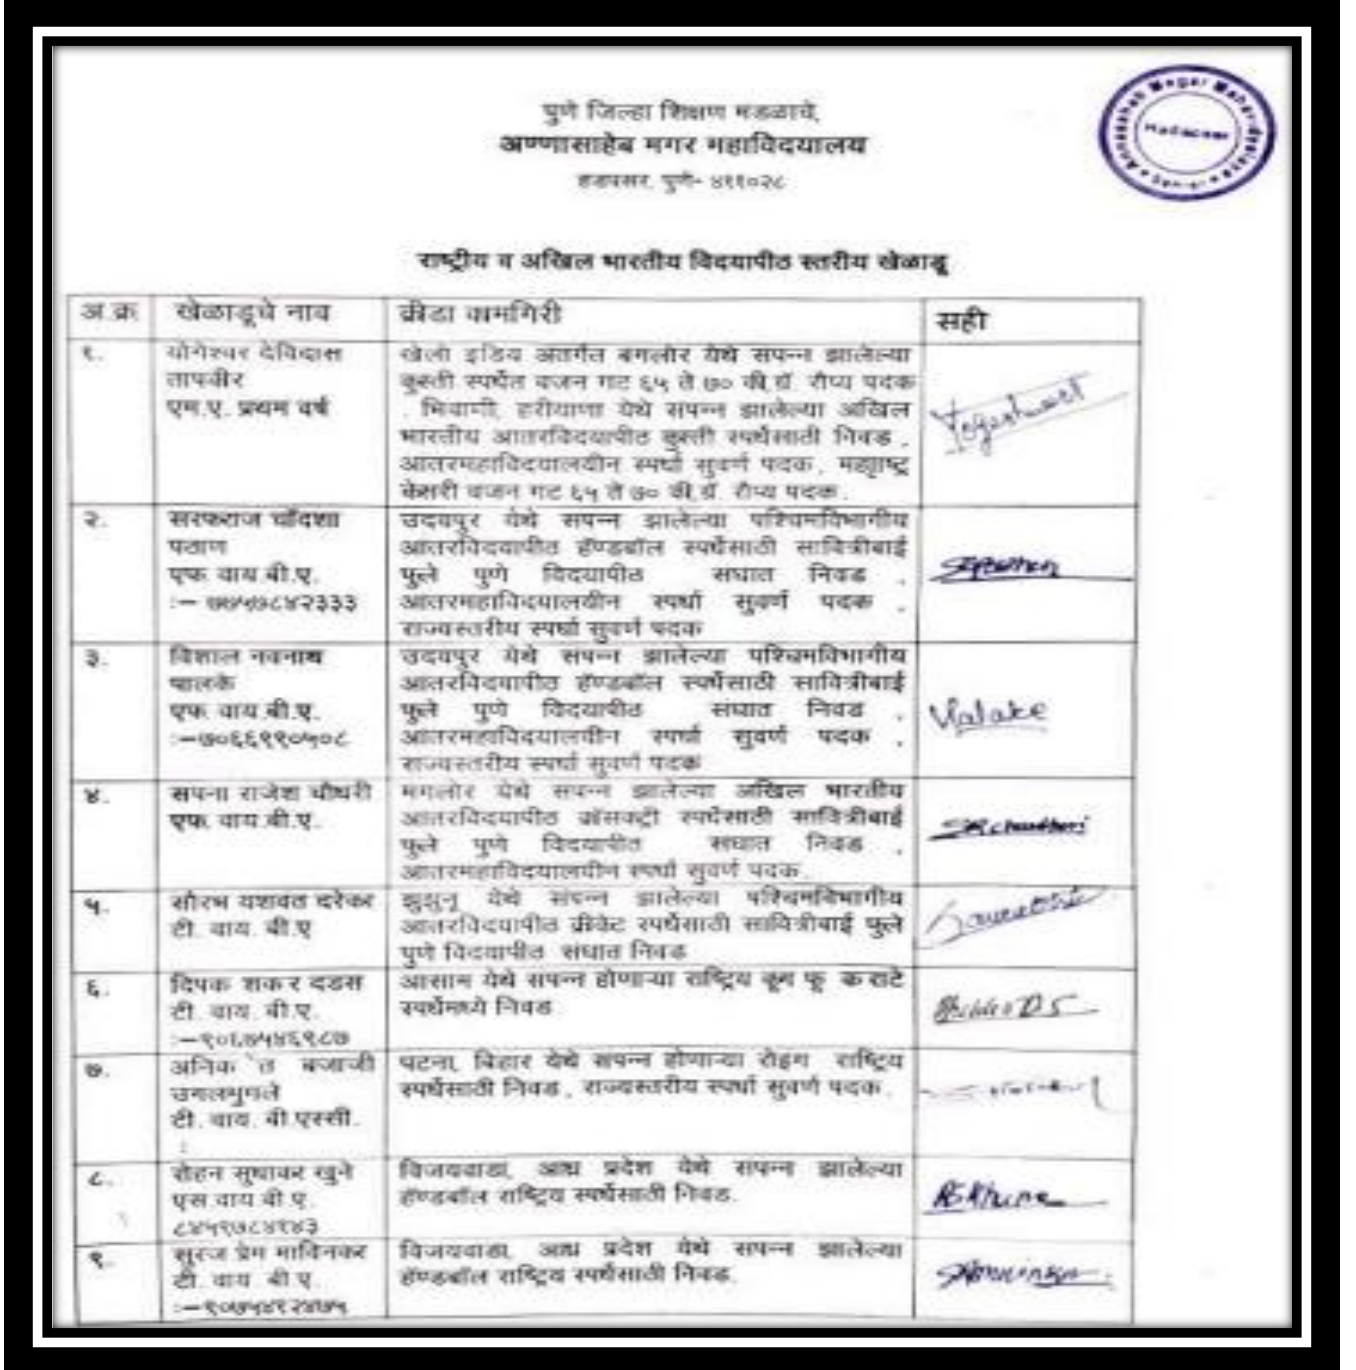 पुणे जिल्हा शिक्षण मंडळाचे,
अण्णासाहेब मगर महाविदयालय
हडपसर, पुणे- ४११०२८
Annasaheb Magar Mahavidyalaya
Hadapsar
राष्ट्रीय व अखिल भारतीय विदयापीठ स्तरीय खेळाडू
अ.क्र
खेळाडूचे नाव
क्रीडा कामगिरी
सही
१.
योगेश्वर देविदास
तापकीर
एम.ए. प्रथम वर्ष
खेलो इंडिय अंतर्गत बंगलोर येथे संपन्न झालेल्या
कुस्ती स्पर्धेत वजन गट ६५ ते ७० की.ग्रॅ. रौप्य पदक
, भिवाणी, हरीयाणा येथे संपन्न झालेल्या अखिल
भारतीय आंतरविदयापीठ कुस्ती स्पर्धेसाठी निवड ,
आंतरमहाविदयालयीन स्पर्धा सुवर्ण पदक,
केसरी वजन गट ६५ ते ७० की.ग्रॅ. रौप्य पदक.
Yogeshwar
२.
सरफराज चाँदशा
पठाण
एफ.वाय.बी.ए.
उदयपुर येथे संपन्न झालेल्या पश्चिमविभागीय
आंतरविदयापीठ हॅण्डबॉल स्पर्धेसाठी सावित्रीबाई
फुले पुणे विदयापीठ संघात निवड ,
आंतरमहाविदयालयीन स्पर्धा सुवर्ण पदक ,
राज्यस्तरीय स्पर्धा सुवर्ण पदक
३.
विशाल नवनाथ
एफ.वाय.बी.ए.
:-७०६६९९०५०८
उदयपुर येथे संपन्न झालेल्या पश्चिमविभागीय
आंतरविदयापीठ हॅण्डबॉल स्पर्धेसाठी सावित्रीबाई
फुले पुणे विदयापीठ संघात निवड ,
आंतरमहाविदयालयीन स्पर्धा सुवर्ण पदक ,
राज्यस्तरीय स्पर्धा सुवर्ण पदक
४.
सपना राजेश चौधरी
एफ.वाय.बी.ए.
मंगलोर येथे संपन्न झालेल्या अखिल भारतीय
आंतरविदयापीठ क्रॉसकंट्री स्पर्धेसाठी सावित्रीबाई
फुले पुणे विदयापीठ संघात निवड ,
आंतरमहाविदयालयीन स्पर्धा सुवर्ण पदक.
SRchaudhari
५.
सौरभ यशवंत दरेकर
टी. वाय. बी.ए
झुझुनू येथे संपन्न झालेल्या पश्चिमविभागीय
आंतरविदयापीठ क्रीकेट स्पर्धेसाठी सावित्रीबाई फुले
पुणे विदयापीठ संघात निवड
६.
दिपक शंकर दडस
टी. वाय. बी.ए.
आसाम येथे संपन्न होणाऱ्या राष्ट्रिय कुंग फू कराटे
स्पर्धेमध्ये निवड.
७.
अनिकेत बजाजी
उगलमुगले
टी. वाय. बी.एस्सी.
:
पटना, बिहार येथे संपन्न होणाऱ्या रोइंग राष्ट्रिय
स्पर्धेसाठी निवड, राज्यस्तरीय स्पर्धा सुवर्ण पदक.
८.
रोहन सुधाकर खुने
एस.वाय.बी.ए.
विजयवाडा, आंध्र प्रदेश येथे संपन्न झालेल्या
हॅण्डबॉल राष्ट्रिय स्पर्धेसाठी निवड.
RSKhune
९.
सुरज प्रेम माविनकर
टी. वाय. बी.ए.
विजयवाडा, आंध्र प्रदेश येथे संपन्न झालेल्या
हॅण्डबॉल राष्ट्रिय स्पर्धेसाठी निवड.